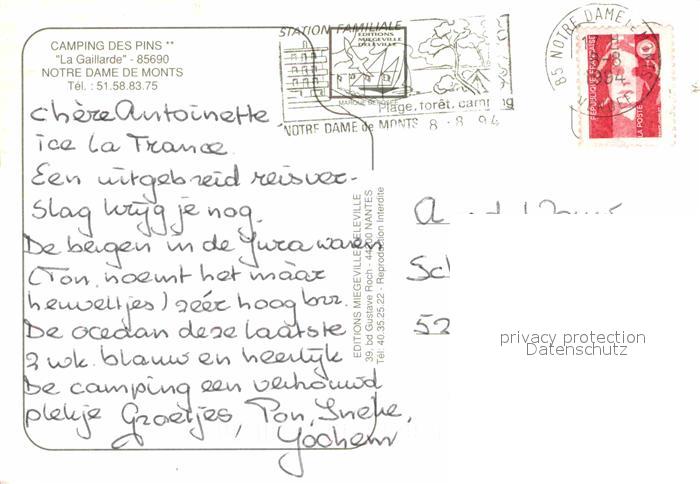 CAMPING DES PINS **
"La Gaillarde" - 85690
NOTRE DAME DE MONTS
Tél. : 51.58.83.75
STATION FAMILIALE
EDITIONS
MIEGEVILLE
DELEVILLE
MARQUE DEPOSEE
Plage, forêt, camping
NOTRE DAME de MONTS 8-8-94
85 NOTRE DAME DE MONTS
VENDEE
REPUBLIQUE FRANÇAISE
LA POSTE
chère Antoinette
ice la France.
Een uitgebreid reisver-
slag krijg je nog.
De bergen in de Jura waren
(Ton, noemt het màar
heuveltjes) zéér hoog brr.
De oceaan deze laatste
2 wk. blauw en heerlijk
De camping een verhouwd
plekje Groetjes, Ton, Ineke,
Jochem
EDITIONS MIEGEVILLE DELEVILLE
39, bd Gustave Roch - 44200 NANTES
Tél. 40.35.25.22 - Reproduction Interdite
52
privacy protection
Datenschutz